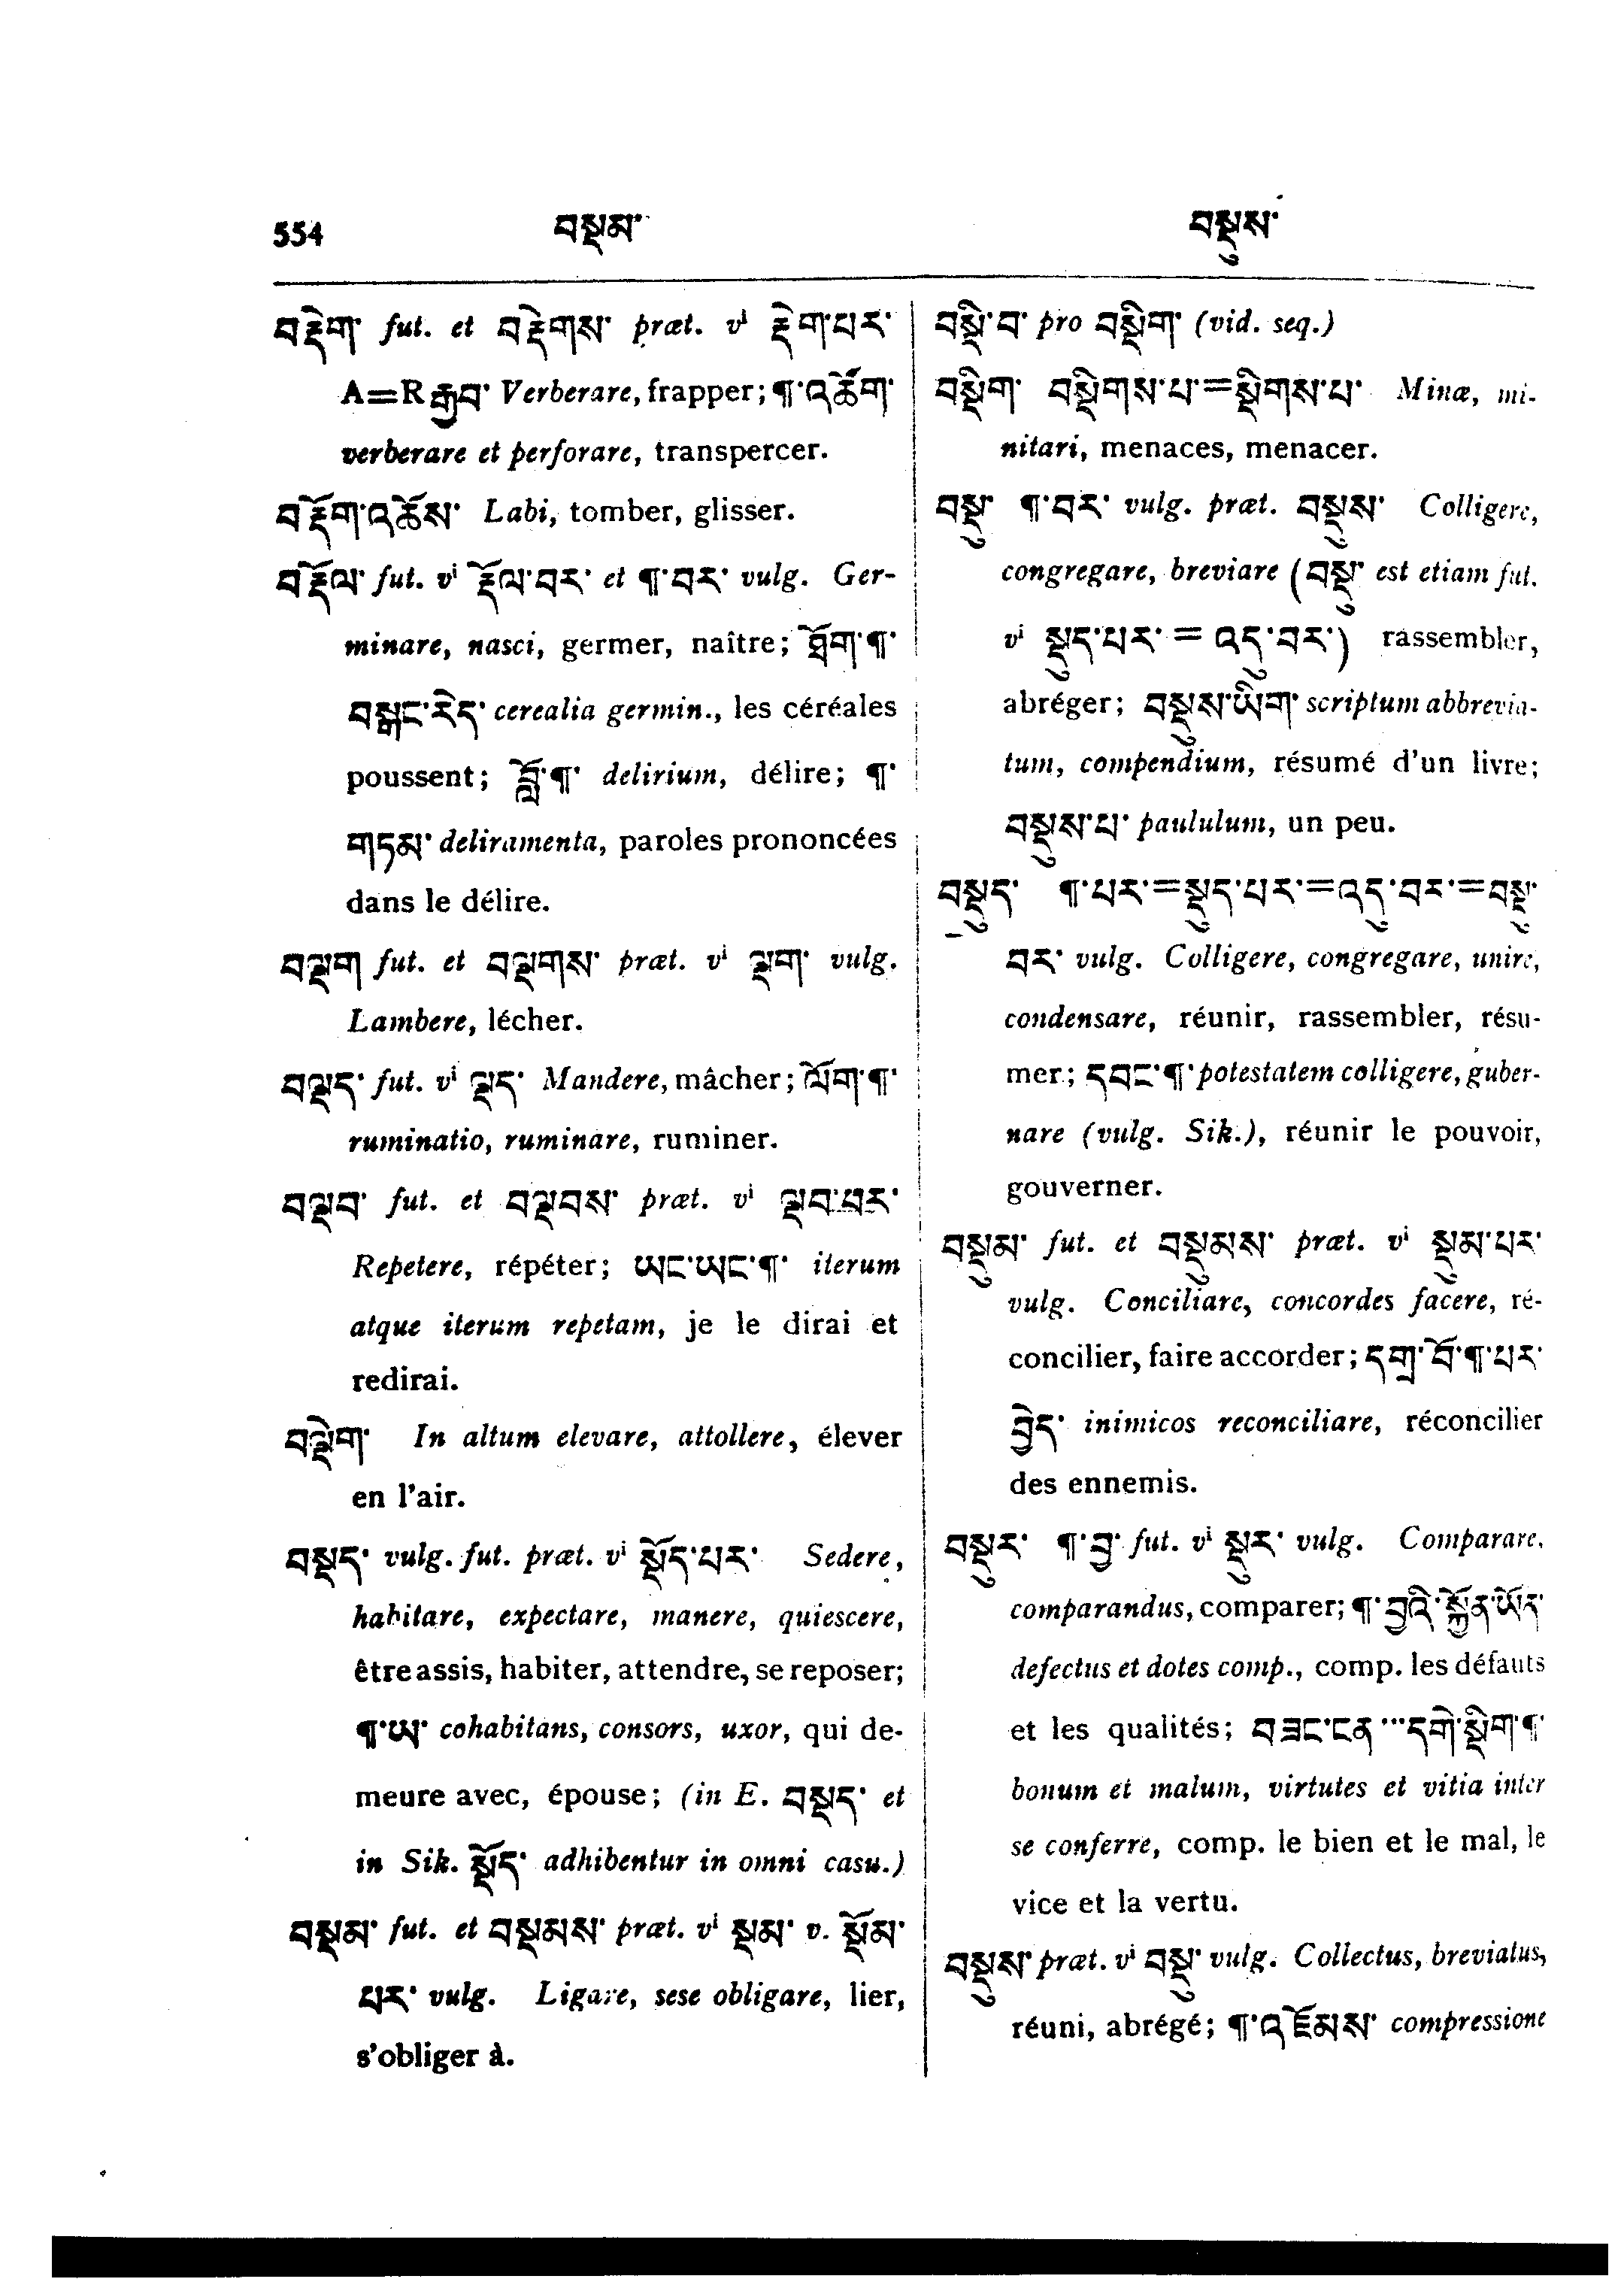 554 བསྡམ་ བསྡུས་
བརྡེག་ fut. et བརྡེགས་ præt. vi རྡེག་པར་
A=R རྒྱབ་ Verberare, frapper; ¶་འཚོག་
verberare et perforare, transpercer.
བརྡོག་འཚོས་ Labi, tomber, glisser.
བརྡོལ་ fut. vi རྡོལ་བར་ et ¶་བར་ vulg. Ger-
minare, nasci, germer, naître; ཐོག་¶་
བསྒང་རེད་ cerealia germin., les céréales
poussent; བློ་¶་ delirium, délire; ¶་
གཏམ་ deliramenta, paroles prononcées
dans le délire.
བལྡག fut. et བལྡགས་ præt. vi ལྡག་ vulg.
Lambere, lécher.
བལྡད་ fut. vi ལྡད་ Mandere, mâcher; ལོག་¶་
ruminatio, ruminare, ruminer.
བལྡབ་ fut. et བལྡབས་ præt. vi ལྡབ་པར་
Repetere, répéter; ཡང་ཡང་¶་ iterum
atque iterum repetam, je le dirai et
redirai.
བལྡེག་ In altum elevare, attollere, élever
en l'air.
བསྡད་ vulg. fut. præt. vi སྡོད་པར་ Sedere,
habitare, expectare, manere, quiescere,
être assis, habiter, attendre, se reposer;
¶་ཡ་ cohabitans, consors, uxor, qui de-
meure avec, épouse; (in E. བསྡད་ et
in Sik. སྡོད་ adhibentur in omni casu.)
བསྡམ་ fut. et བསྡམས་ præt. vi སྡམ་ v. སྡོམ་
པར་ vulg. Ligare, sese obligare, lier,
s'obliger à.
བསྡི་བ་ pro བསྡིག་ (vid. seq.)
བསྡིག་ བསྡིགས་པ་=སྡིགས་པ་ Minæ, mi-
nitari, menaces, menacer.
བསྡུ་ ¶་བར་ vulg. præt. བསྡུས་ Colligere,
congregare, breviare (བསྡུ་ est etiam fut.
vi སྡུད་པར་ = འདུ་བར་) rassembler,
abréger; བསྡུས་ཡིག་ scriptum abbrevia-
tum, compendium, résumé d'un livre;
བསྡུས་པ་ paululum, un peu.
བསྡུད་ ¶་པར་=སྡུད་པར་=འདུ་བར་=བསྡུ་
བར་ vulg. Colligere, congregare, unire,
condensare, réunir, rassembler, résu-
mer; དབང་¶་ potestatem colligere, guber-
nare (vulg. Sik.), réunir le pouvoir,
gouverner.
བསྡུམ་ fut. et བསྡུམས་ præt. vi སྡུམ་པར་
vulg. Conciliare, concordes facere, ré-
concilier, faire accorder; དགྲ་བོ་¶་པར་
བྱེད་ inimicos reconciliare, réconcilier
des ennemis.
བསྡུར་ ¶་བྱ་ fut. vi སྡུར་ vulg. Comparare,
comparandus, comparer; ¶་བྱའི་སྐྱོན་ཡོན་
defectus et dotes comp., comp. les défauts
et les qualités; བཟང་ངན་···དགེ་སྡིག་¶་
bonum et malum, virtutes et vitia inter
se conferre, comp. le bien et le mal, le
vice et la vertu.
བསྡུས་ præt. vi བསྡུ་ vulg. Collectus, breviatus,
réuni, abrégé; ¶་འཇོམས་ compressione